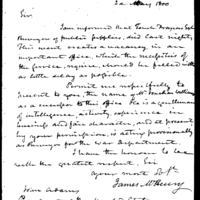 2d May 1800
Sir
I am informed that Tench Francis Esq.
Purveyor of public supplies, died last night.
This event creates a vacancy, in an
important office, while the necessities of
the service require, should be filled with
as little delay as possible.
Permit me respectfully to
present to you, the name of
as a successor to this office. He is a gentleman
of intelligence, activity experience in
and fair character, and at present
by your permission, is acting provisionally
as Purveyor for the War Department.
I have the honour to be
with the greatest respect, Sir
your most ob. St.
James McHenry
Adams